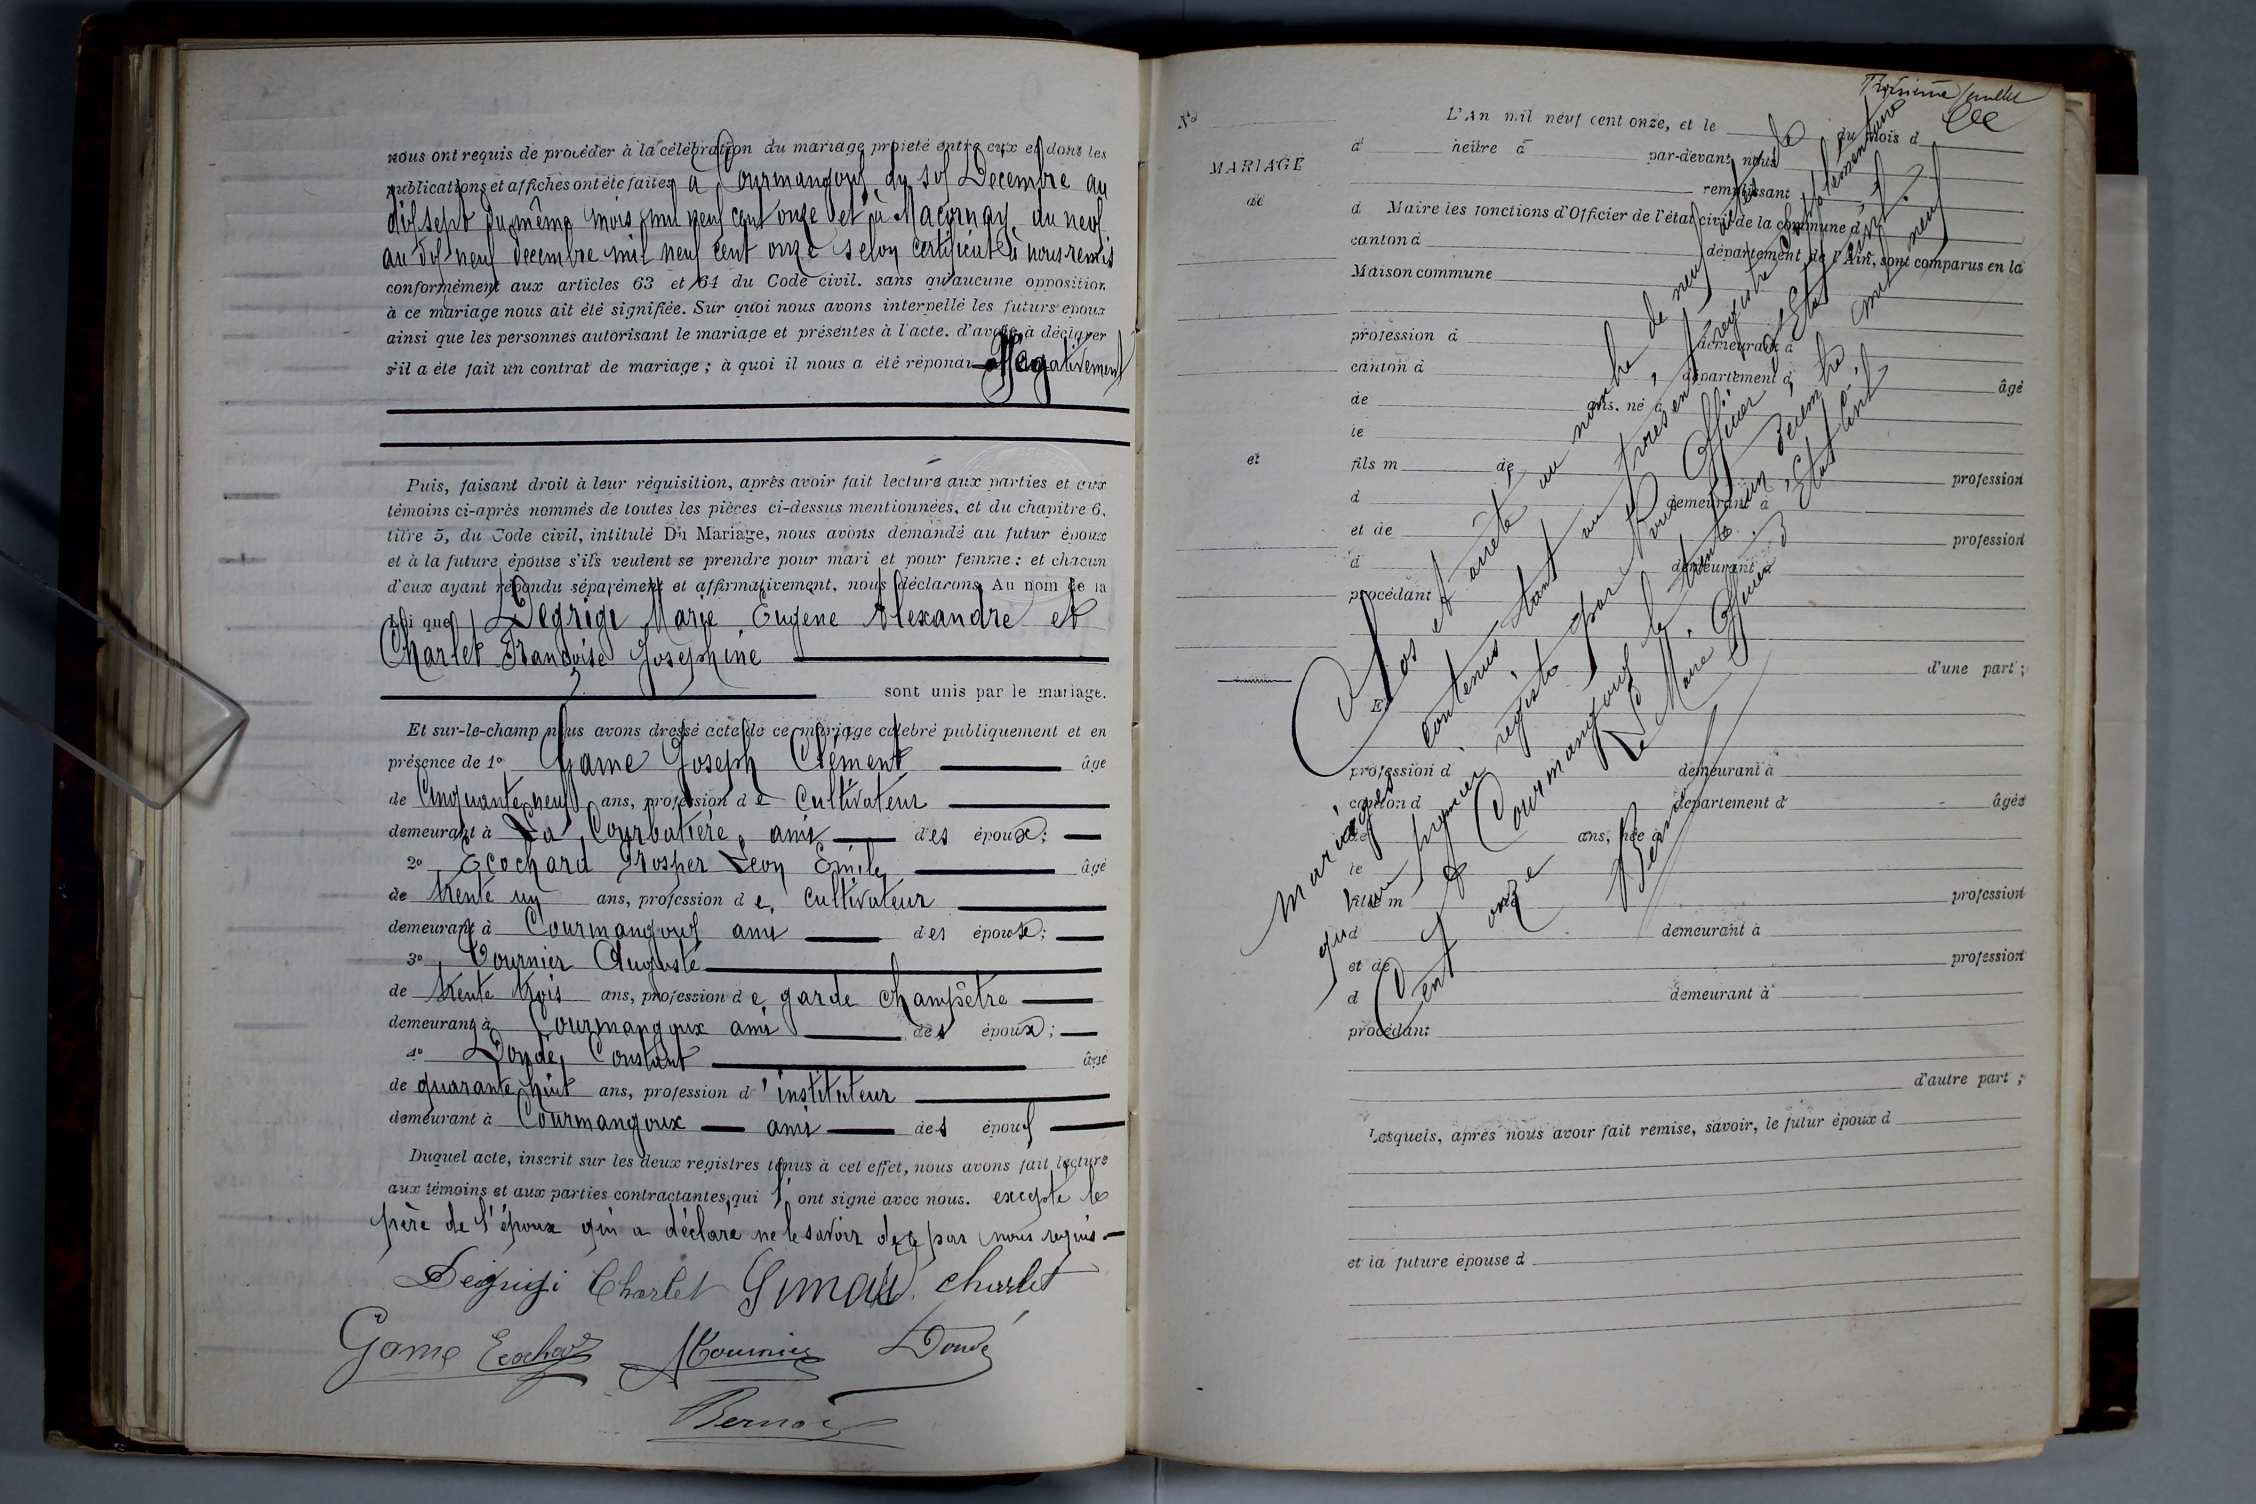 nous ont requis de procéder à la célébration du mariage projeté entre eux et dont les
publications et affiches ont été faites à Courmangoux, du six Décembre au
dix sept du même mois mil neuf cent onze et à Macornay du neuf
au dix neuf décembre mil neuf cent onze selon certificat à nous remis
conformément aux articles 63 et 64 du Code civil. sans qu'aucune opposition
à ce mariage nous ait été signifiée. Sur quoi nous avons interpellé les futurs époux
ainsi que les personnes autorisant le mariage et présentes à l'acte. d'avoir à déclarer
s'il a été fait un contrat de mariage ; à quoi il nous a été répondu Négativement
Puis, faisant droit à leur réquisition, après avoir fait lecture aux parties et aux
témoins ci-après nommés de toutes les pièces ci-dessus mentionnées, et du chapitre 6,
titre 5, du Code civil, intitulé Du Mariage, nous avons demandé au futur époux
et à la future épouse s'ils veulent se prendre pour mari et pour femme : et chacun
d'eux ayant répondu séparément et affirmativement, nous déclarons Au nom de la
Loi que Degrigi Marie Eugène Alexandre et
Charlet Françoise Joséphine
sont unis par le mariage.
Et sur-le-champ nous avons dressé acte de ce mariage célébré publiquement et en
présence de 1° Game Joseph Clément âgé
de Cinquante neuf ans, profession de Cultivateur
demeurant à La Courbatière, ami des époux ;
2° Ecochard Prosper Léon Emile âgé
de trente un ans, profession de cultivateur
demeurant à Courmangoux ami des époux ;
3° Tournier Auguste
de trente trois ans, profession de garde champêtre
demeurant à Courmangoux ami des époux ;
4° Dondé, Constant âgé
de quarante huit ans, profession d'instituteur
demeurant à Courmangoux ami des époux
Duquel acte, inscrit sur les deux registres tenus à cet effet, nous avons fait lecture
aux témoins et aux parties contractantes, qui l'ont signé avec nous. excepté le
père de l'époux qui a déclaré ne le savoir de ce par nous requis
Degrigi Charlet Charlet
Game Ecochard Tournier Dondé
Bernard
Troisième feuillet
N°
MARIAGE
de
et
L'An mil neuf cent onze, et le du mois d
d heure à par-devant nous
remplissant
d Maire les fonctions d'Officier de l'état civil de la commune d
canton d département de l'Ain, sont comparus en la
Maison commune
profession d demeurant à
canton d département d âgé
de ans, né à
le
fils m de profession
d demeurant à
et de profession
d demeurant à
procédant
d'une part ;
Et
profession d demeurant à
canton d département d âgée
de ans, née à
le
fille m profession
d demeurant à
et de profession
d demeurant à
procédant
d'autre part ;
Lesquels, après nous avoir fait remise, savoir, le futur époux d
et la future épouse d
Clos et arrêté au nombre de neuf actes de
mariages contenus tant au présent registre supplémentaire
qu'au premier registre par Nous Officier de l'Etat civil
de Courmangoux le trente un décembre mil neuf
cent onze
Le Maire, Officier de l'Etat civil
Bernard